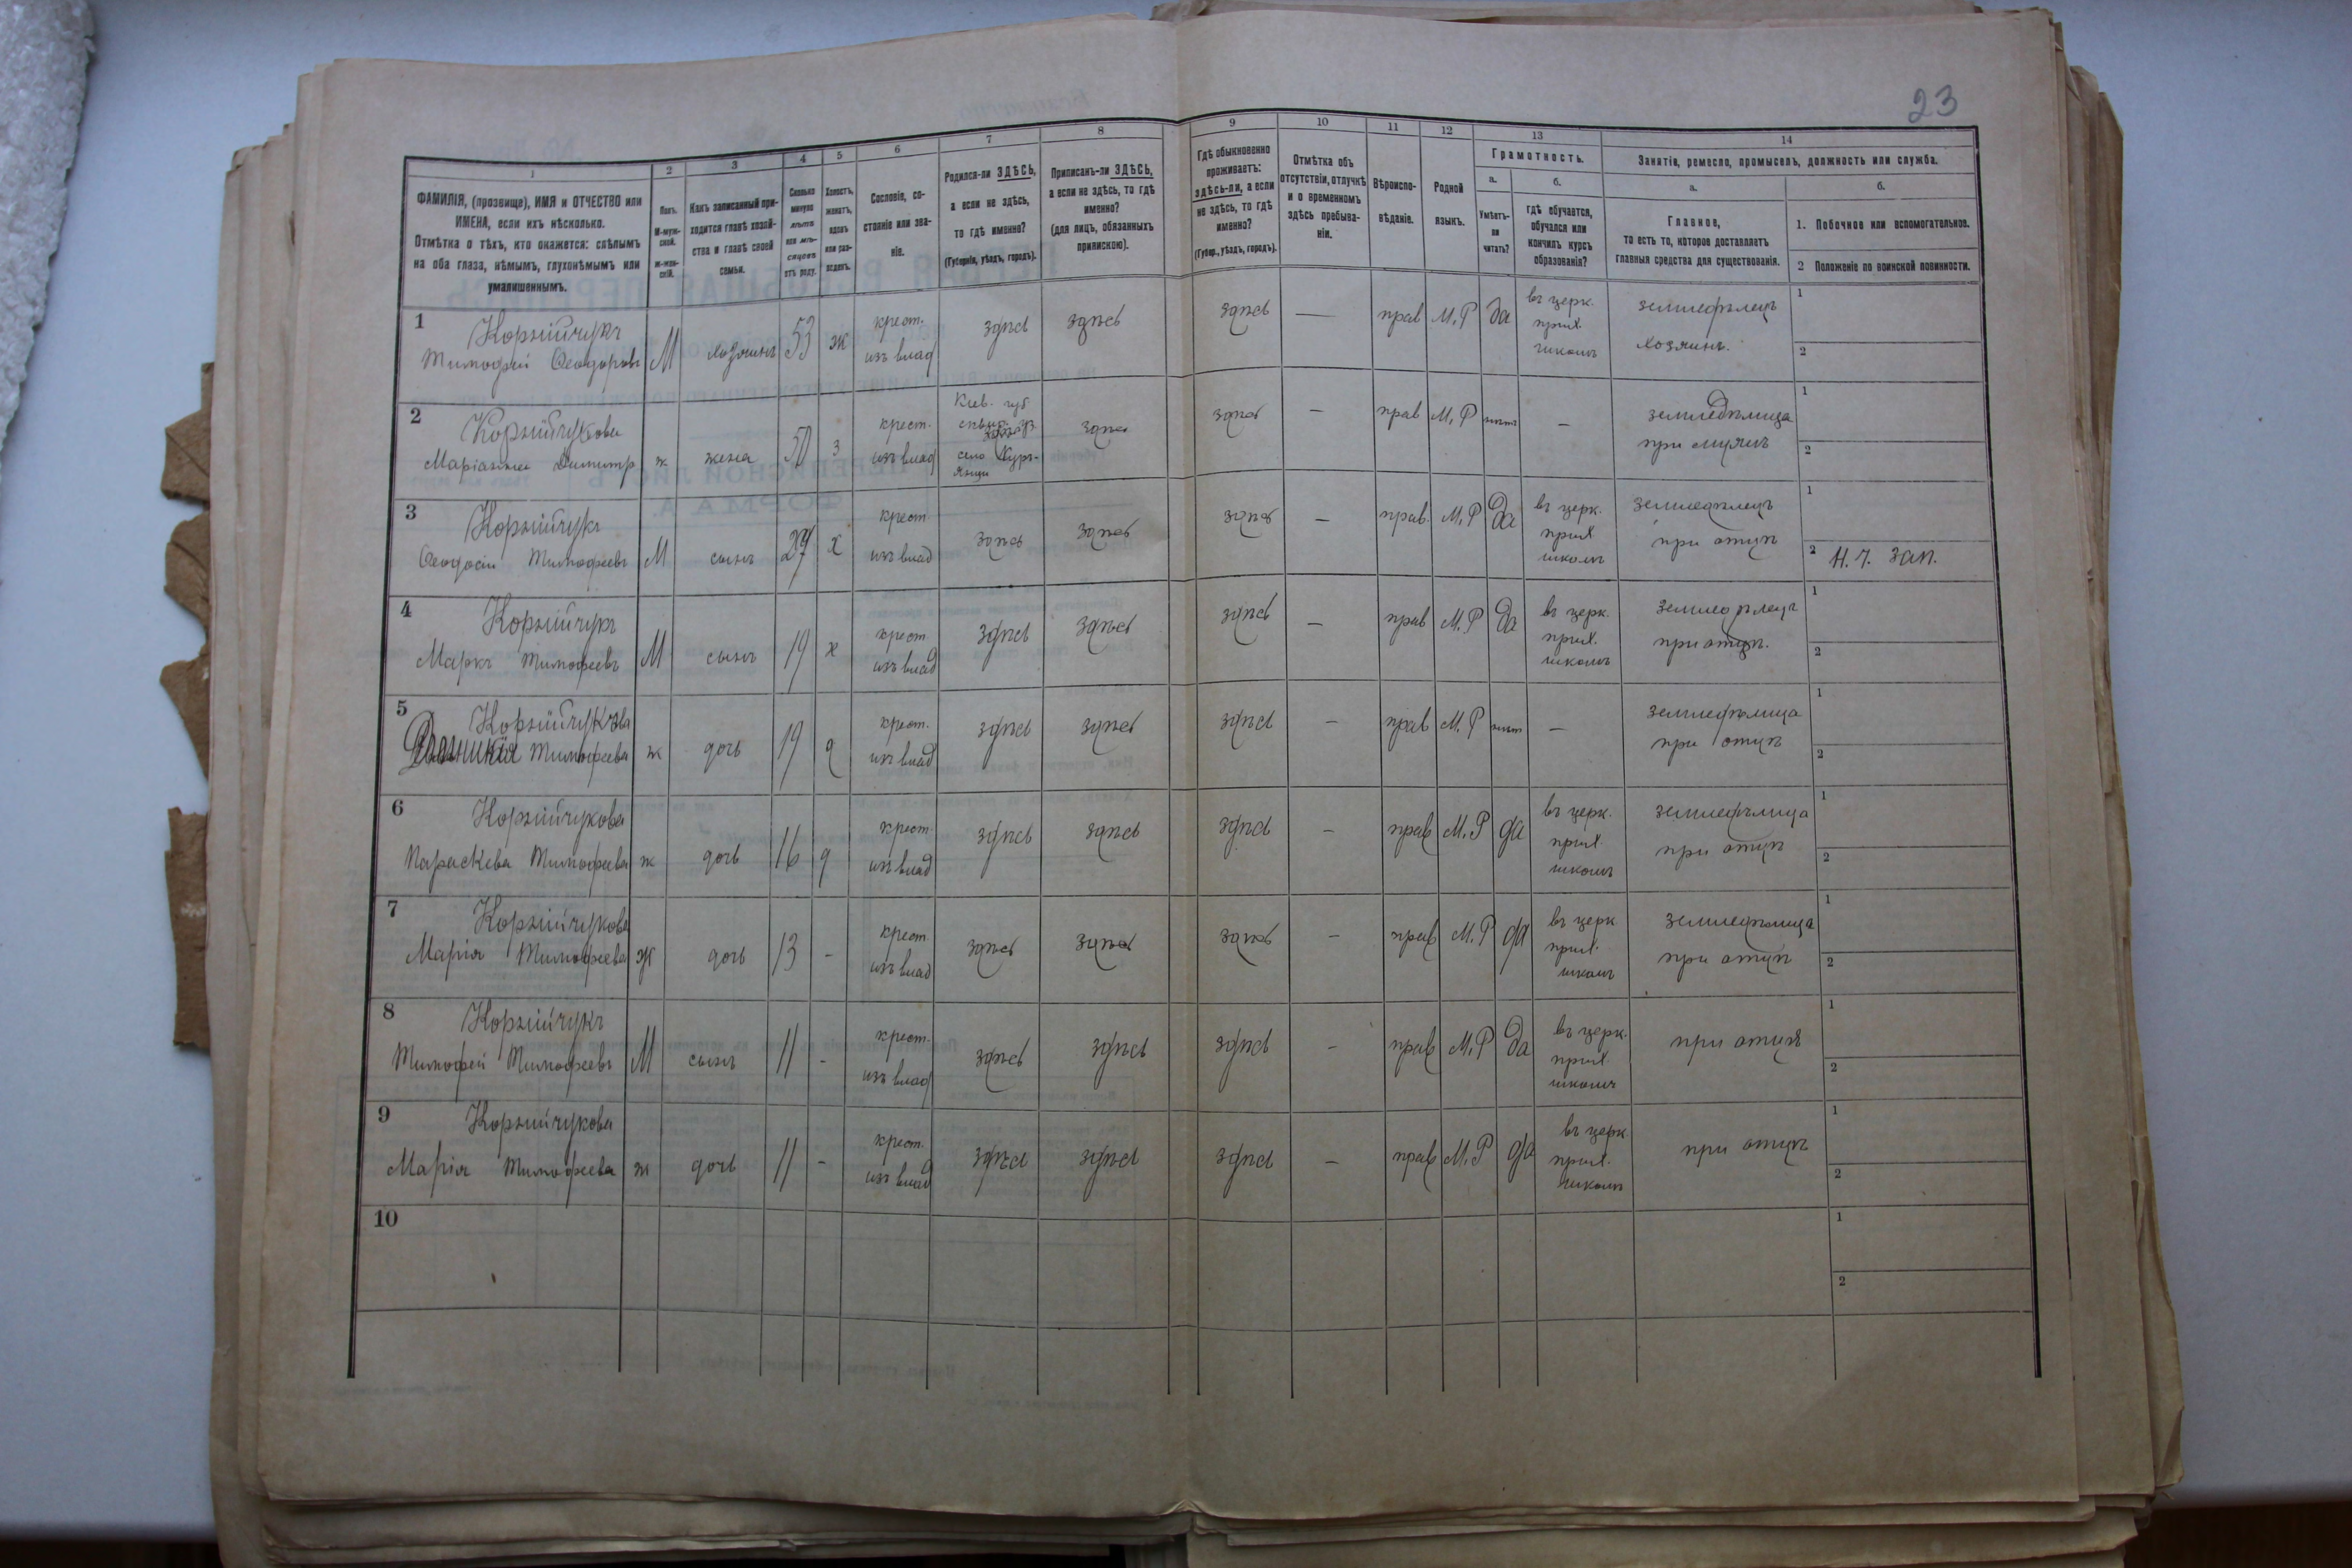 23
1 2 3 4 5 6 7 8 9 10 11 12 13 14
ФАМИЛІЯ, (прозвище), ИМЯ и ОТЧЕСТВО или
ИМЕНА, если ихъ нѣсколько.
Отмѣтка о тѣхъ, кто окажется: слѣпымъ
на оба глаза, нѣмымъ, глухонѣмымъ или
умалишеннымъ.
Полъ.
М-муж-
ской.
ж-жен-
скій.
Какъ записанный при-
ходится главѣ хозяй-
ства и главѣ своей
семьи.
Сколько
минуло
лѣтъ
или мѣ-
сяцевъ
отъ роду.
Холостъ,
женатъ,
вдовъ
или раз-
веденъ.
Сословіе, со-
стояніе или зва-
ніе.
Родился-ли ЗДѢСЬ,
а если не здѣсь,
то гдѣ именно?
(Губернія, уѣздъ, городъ).
Приписанъ-ли ЗДѢСЬ,
а если не здѣсь, то гдѣ
именно?
(для лицъ, обязанныхъ
припискою).
Гдѣ обыкновенно
проживаетъ:
здѣсь-ли, а если
не здѣсь, то гдѣ
именно?
(Губер., уѣздъ, городъ).
Отмѣтка объ
отсутствіи, отлучкѣ
и о временномъ
здѣсь пребыва-
ніи.
Вѣроиспо-
вѣданіе.
Родной
языкъ.
Грамотность.
а.
Умѣетъ-
ли
читать?
б.
гдѣ обучается,
обучался или
кончилъ курсъ
образованія?
Занятіе, ремесло, промыселъ, должность или служба.
а.
Главное,
то есть то, которое доставляетъ
главныя средства для существованія.
б.
1. Побочное или вспомогательное.
2 Положеніе по воинской повинности.
1 Корнійчукъ
Тимофей Феодоровъ М хозяинъ 53 ж крест. изъ влад здѣсь здѣсь здѣсь — прав М. Р да въ церк. прих. школѣ земледѣлецъ хозяинъ. 1 2
2 Корнійчукова
Маріанна Димитр ж жена 50 з крест. изъ влад Кіев. губ село здѣсь здѣсь — прав М. Р — земледѣлица при мужѣ 1 2
3 Корнійчукъ
Феодосій Тимофеевъ М сынъ 27 х крест. изъ влад здѣсь здѣсь здѣсь — прав. М. Р да въ церк. прих школѣ земледѣлецъ при отцѣ 1 2 Н. Ч. зап.
4 Корнійчукъ
Маркъ Тимофеевъ М сынъ 19 х крест изъ влад здѣсь здѣсь здѣсь — прав М. Р да въ церк. прих. школѣ земледѣлецъ при отцѣ. 1 2
5 Корнійчукова
Тимофеева ж дочь 19 д крест. изъ влад здѣсь здѣсь здѣсь — прав М. Р — земледѣлица при отцѣ 1 2
6 Корнійчукова
Параскева Тимофеева ж дочь 16 д крест. изъ влад здѣсь здѣсь здѣсь — прав М. Р да въ церк. прих. школѣ земледѣлица при отцѣ 1 2
7 Корнійчукова
Марія Тимофеева ж дочь 13 - крест. изъ влад здѣсь здѣсь здѣсь — прав М. Р да въ церк прих. школѣ земледѣлица при отцѣ 1 2
8 Корнійчукъ
Тимофей Тимофеевъ М сынъ 11 - крест. изъ влад здѣсь здѣсь здѣсь — прав М. Р да въ церк. прих. школѣ при отцѣ 1 2
9 Корнійчукова
Марія Тимофеева ж дочь 11 - крест. изъ влад здѣсь здѣсь здѣсь — прав М. Р да въ церк. прих. школѣ при отцѣ 1 2
10 1 2